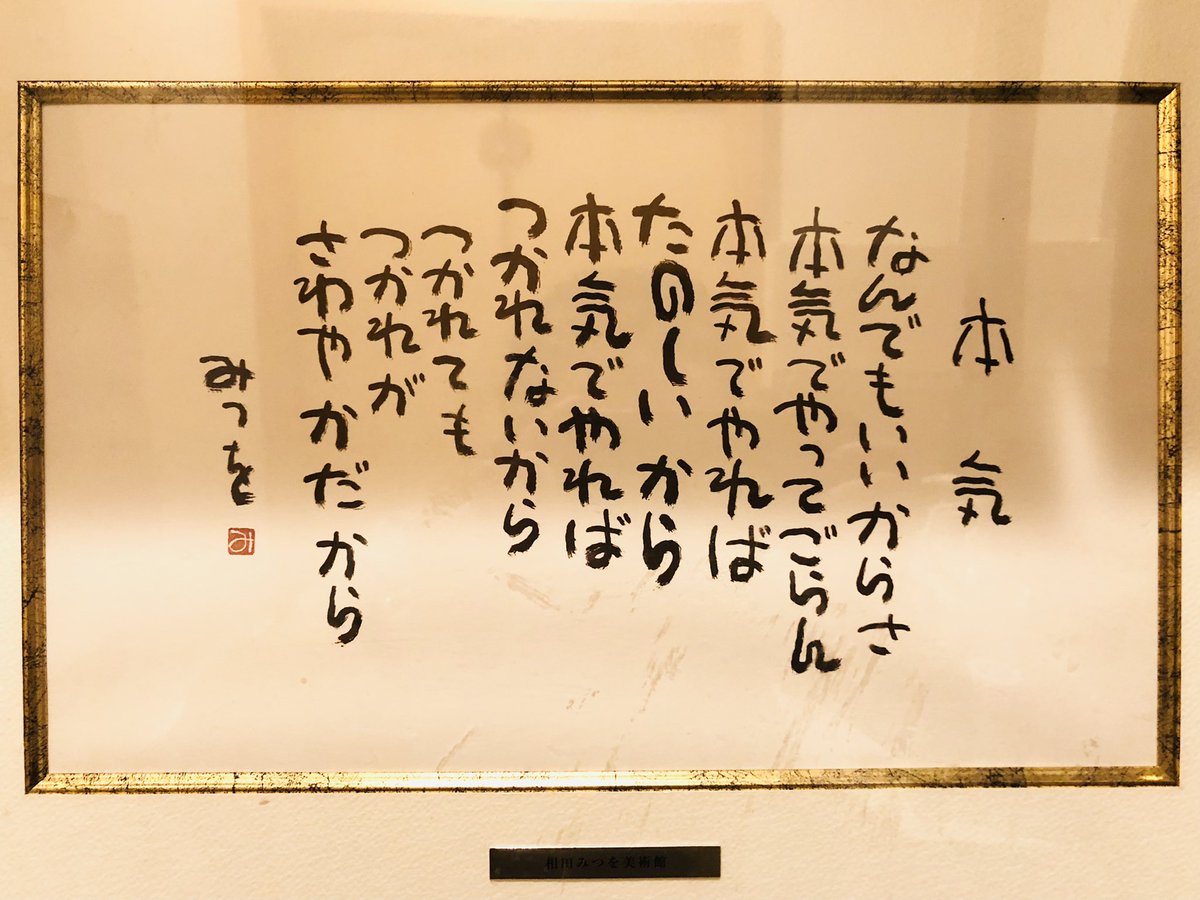 本気
なんでもいいからさ
本気でやってごらん
本気でやれば
たのしいから
本気でやれば
つかれないから
つかれても
つかれが
さわやかだから
みつを
み
相田みつを美術館